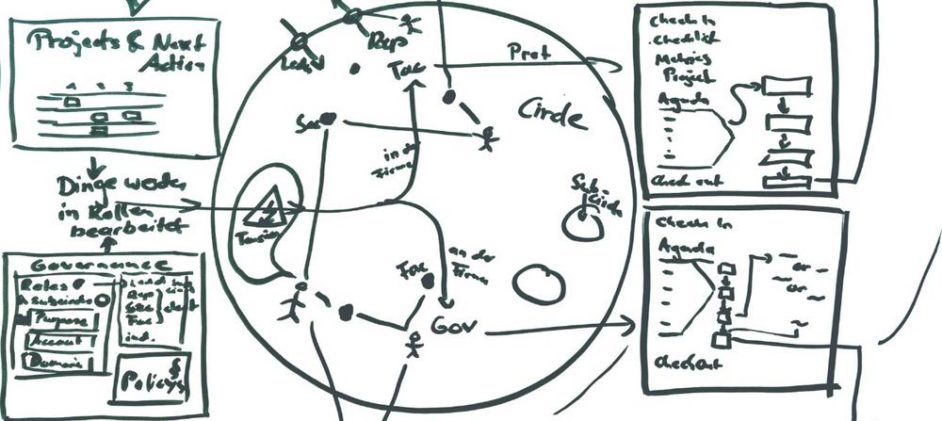 Projects & Next
Action
Dinge werden
in Rollen
bearbeitet
Governance
Roles
Purpose
Account
Domain
Lead
Rep
Sec
Fac
ind.
Policys
§
Rep
Tac
Sec
in der
Firma
Tension
Circle
Sub-
Circle
an der
Firma
Fac
Gov
Prot
Check In
Checklist
Metrics
Project
Agenda
Check out
Check In
Agenda
or
or
Check Out